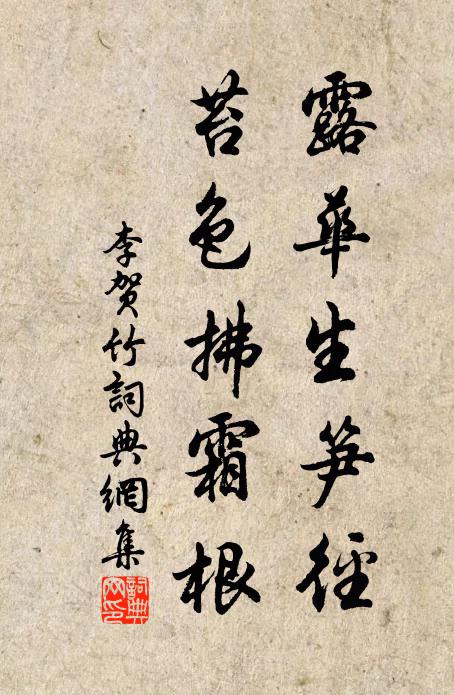 露華生笋徑
苔色拂霜根
李賀竹詞典網集
詞典網印